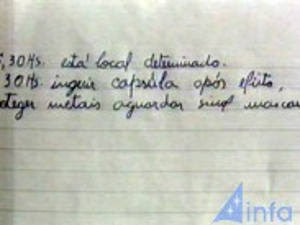 ,30 Hs. está local determinado.
30 Hs. ingerir capsúla após efeito,
oteger metais aguardar sinal mascar
infa